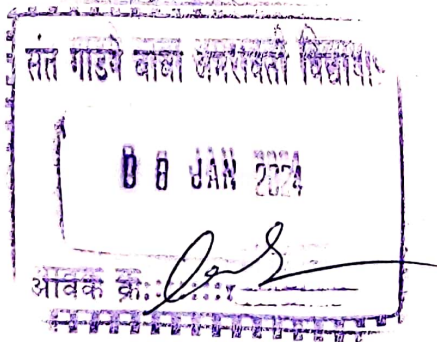 संत गाडगे बाबा अमरावती विद्यापी
0 8 JAN 2024
आवक क्र.: